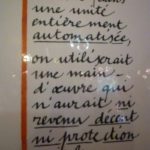 une unité
entièrement
automatisée,
on utilisait
une main-
d'œuvre qui
n'aurait ni
revenu décent
ni protection